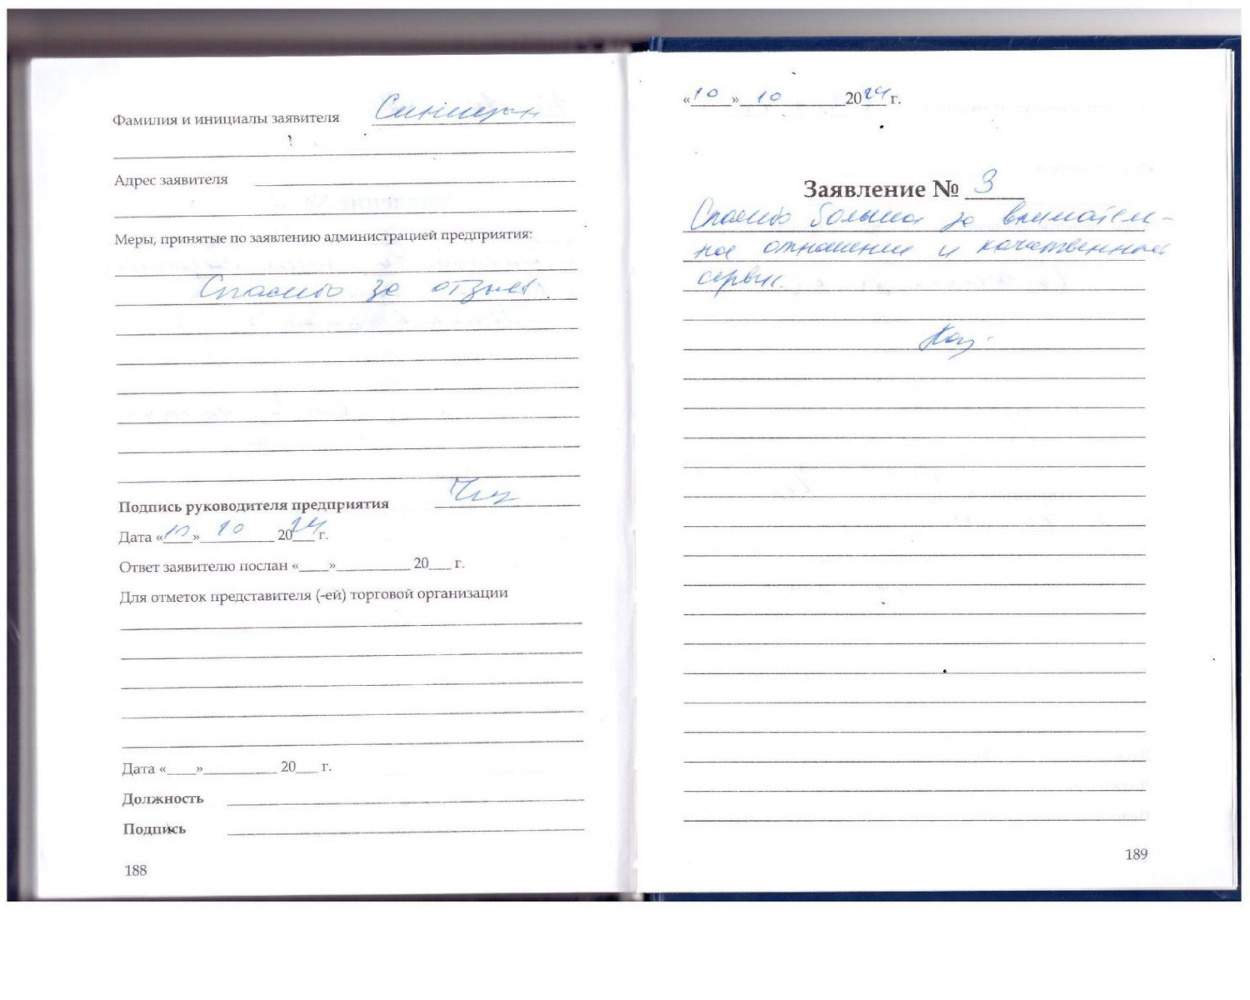 Фамилия и инициалы заявителя
Адрес заявителя
Меры, принятые по заявлению администрацией предприятия:
Спасибо за отзыв.
Подпись руководителя предприятия
Дата «10» 10 2024 г.
Ответ заявителю послан «____»__________ 20___ г.
Для отметок представителя (-ей) торговой организации
Дата «____»__________ 20___ г.
Должность
Подпись
188
«10» 10 2024 г.
Заявление № 3
Спасибо большое за вниматель-
ное отношение и качественный
сервис.
189